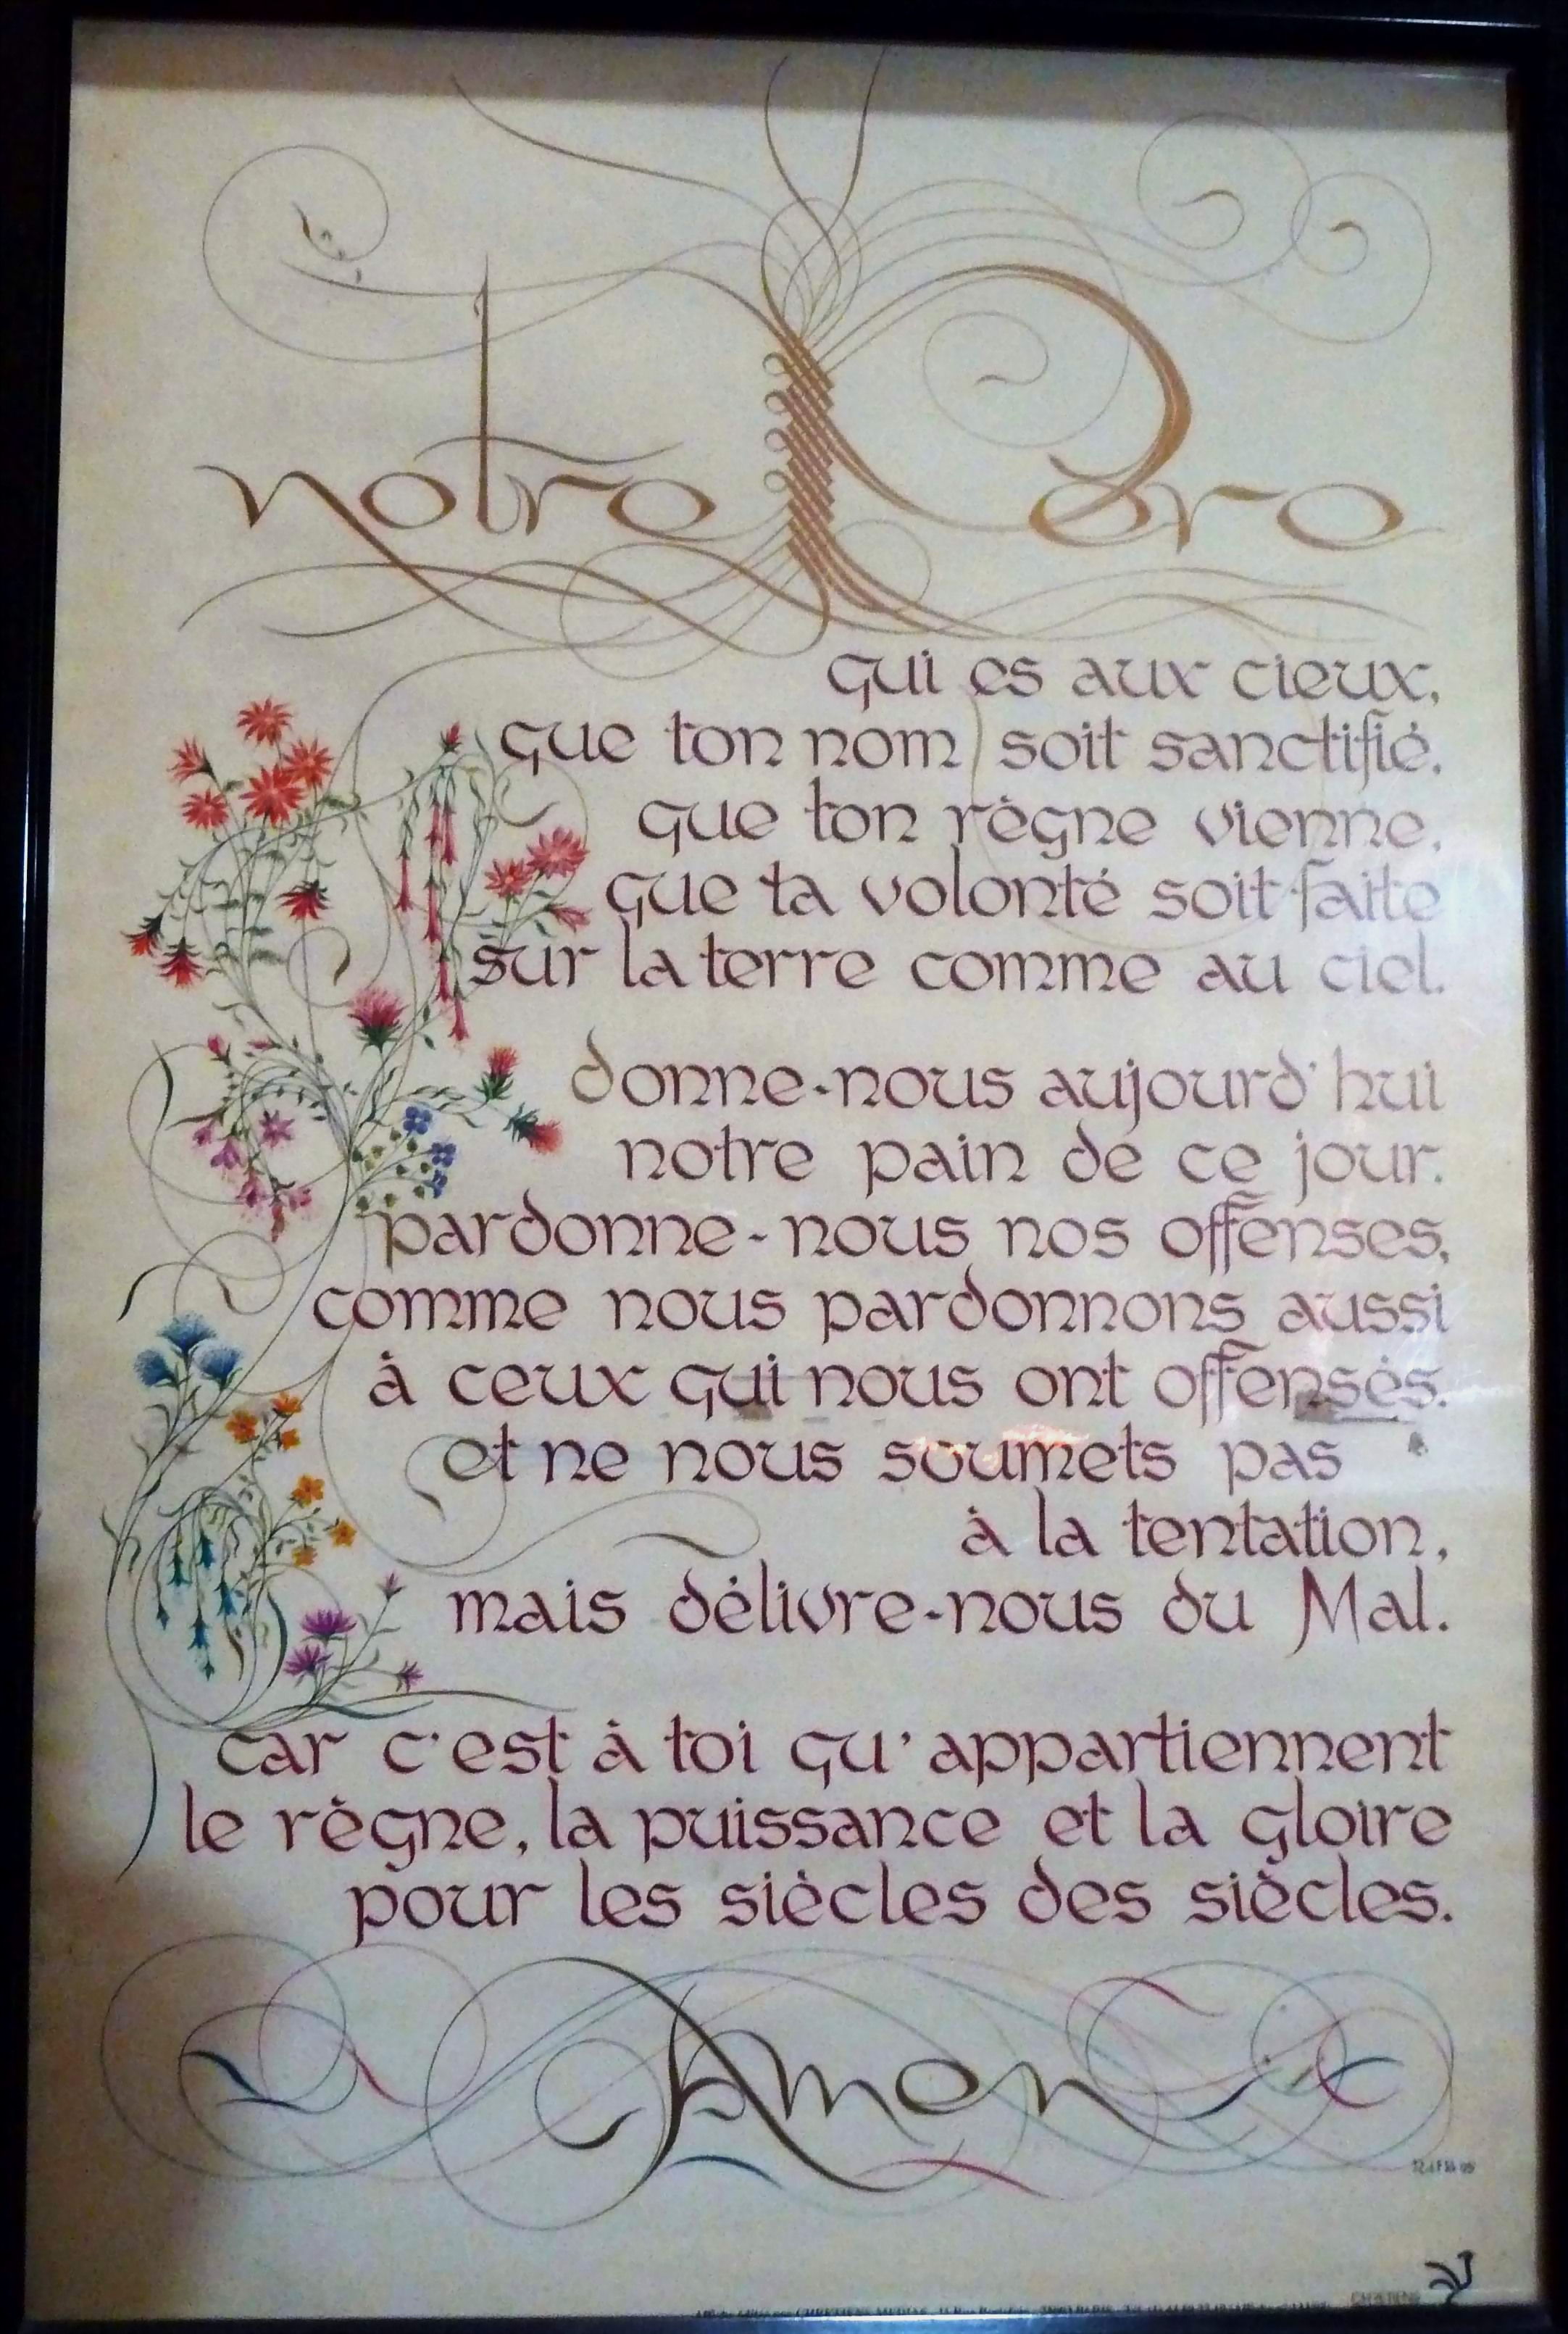 notre Père
qui es aux cieux,
que ton nom soit sanctifié,
que ton règne vienne,
que ta volonté soit faite
sur la terre comme au ciel.
donne-nous aujourd'hui
notre pain de ce jour.
pardonne-nous nos offenses,
comme nous pardonnons aussi
à ceux qui nous ont offensés.
et ne nous soumets pas
à la tentation,
mais délivre-nous du Mal.
car c'est à toi qu'appartiennent
le règne, la puissance et la gloire
pour les siècles des siècles.
Amen